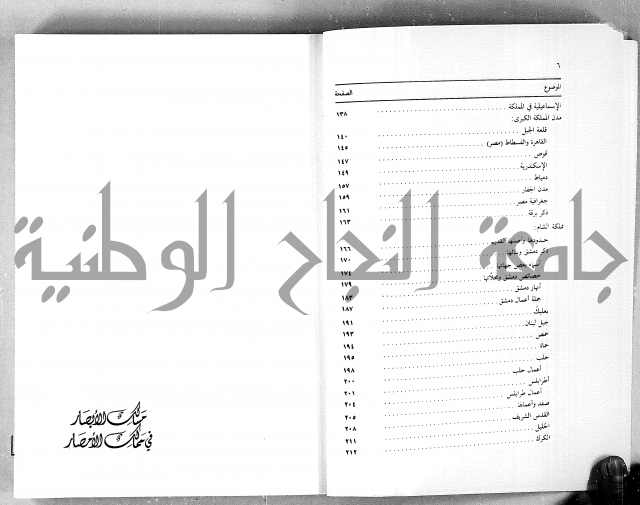 ٦
الموضوع الصفحة
الإسماعيلية في المملكة ١٣٨
مدن المملكة الكبرى:
قلعة الجبل ١٤٠
القاهرة والفسطاط (مصر) ١٤٥
قوص ١٤٧
الإسكندرية ١٤٩
دمياط ١٥٧
مدن الجفار ١٥٩
جغرافية مصر ١٦١
ذكر برقة ١٦٣
مملكة الشام:
حدودها القديم ١٦٦
ذكر دمشق وبنائها ١٧٠
أسماء بعض جهاتها ١٧٤
خصائص دمشق ١٧٩
أنهار دمشق ١٨٣
جملة أعمال دمشق ١٨٧
بعلبك ١٩١
جبل لبنان ١٩٣
حمص ١٩٤
حماة ١٩٥
حلب ١٩٨
أعمال حلب ٢٠٠
أطرابلس ٢٠١
أعمال طرابلس ٢٠٤
صفد وأعمالها ٢٠٥
القدس الشريف ٢٠٨
الخليل ٢١١
الكرك ٢١٢
مسالك الأبصار
في ممالك الأمصار
جامعة النجاح الوطنية